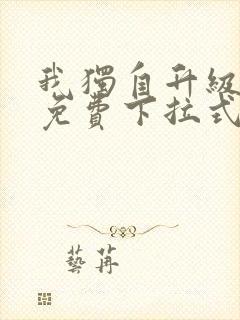 我獨自升級
免費下拉式
藝苒